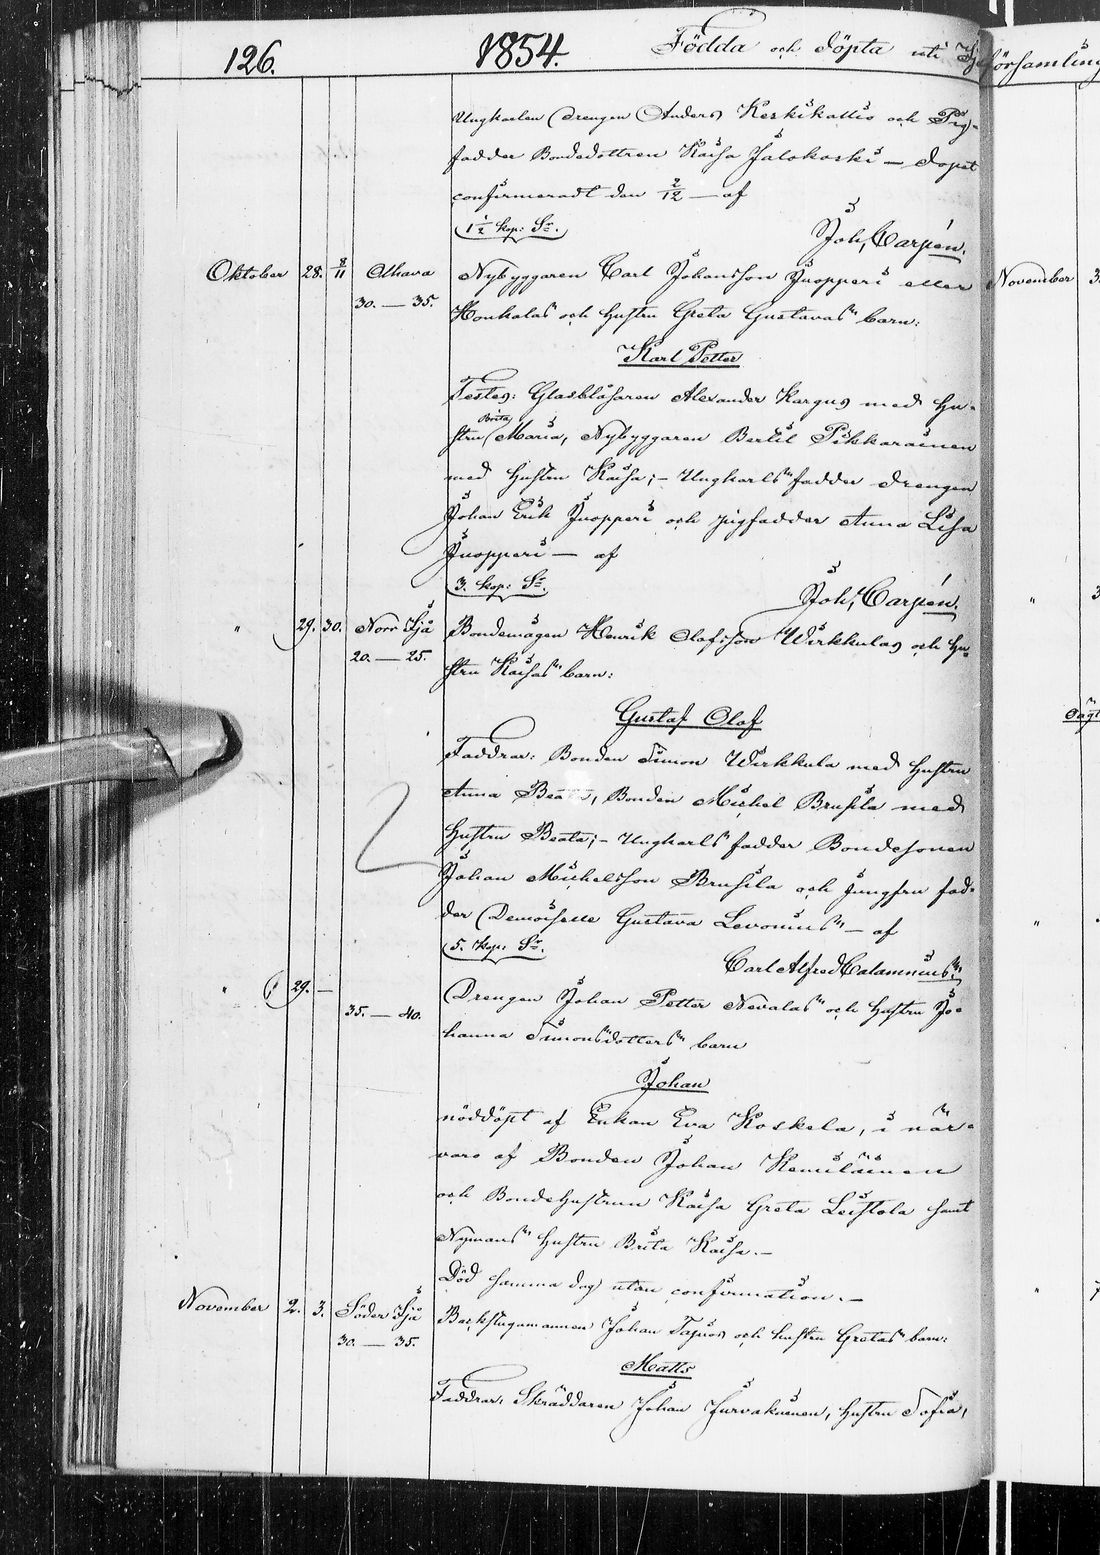 126. 1854. Födda och döpta uti Ijo församling
Ungkarlen Drengen Anders Keskikallio och Pig-
fadder Bondedottren Kaisa Jalokoski — dopet
confirmeradt den 2/12 — af
1½ kop: Sr.
Joh, Carpén.
Oktober 28. 8/11 Alhava Nybyggaren Carl Johansson Juopperi eller
30. — 35. Honkalas och hustru Greta Gustavas barn:
Karl Petter
Testes: Glasblåsaren Alexander Kargus med Hu-
stru Brita Maria, Nybyggaren Bertil Pikkarainen
med hustru Kaisa; — Ungkarls fadder drengen
Johan Erik Juopperi och pigfadder Anna Lisa
Juopperi — af
3. kop: Sr.
Joh, Carpén.
" 29. 30. Norr Ijå Bondemågen Henrik Olofsson Wirkkulas och hu-
20. — 25. stru Kaisas barn:
Gustaf Olof
Faddrar: Bonden Simon Wirkkula med hustru
Anna Beata, Bonden Michel Brusila med
hustru Beata; — Ungkarls fadder Bondesonen
Johan Michelsson Brusila och Jungfru fad-
der Demoiselle Gustava Levonius — af
5. kop: Sr.
Carl Alfred Calamnius.
" 29. —
35. — 40. Drengen Johan Petter Nevalas och hustru Jo-
hanna Simonsdotters barn
Johan
nöddöpt af Enkan Eva Koskela, i när-
varo af Bonden Johan Kemiläinen
och Bondehustrun Kaisa Greta Leistola samt
Nymans hustru Brita Kaisa. —
Död samma dag utan confirmation. —
November 2. 3. Söder Ijå Backstugumannen Johan Tapios och hustru Gretas barn:
30. — 35.
Matts
Faddrar: Skräddaren Johan Jurvakainen, hustru Sofia,
November 3.